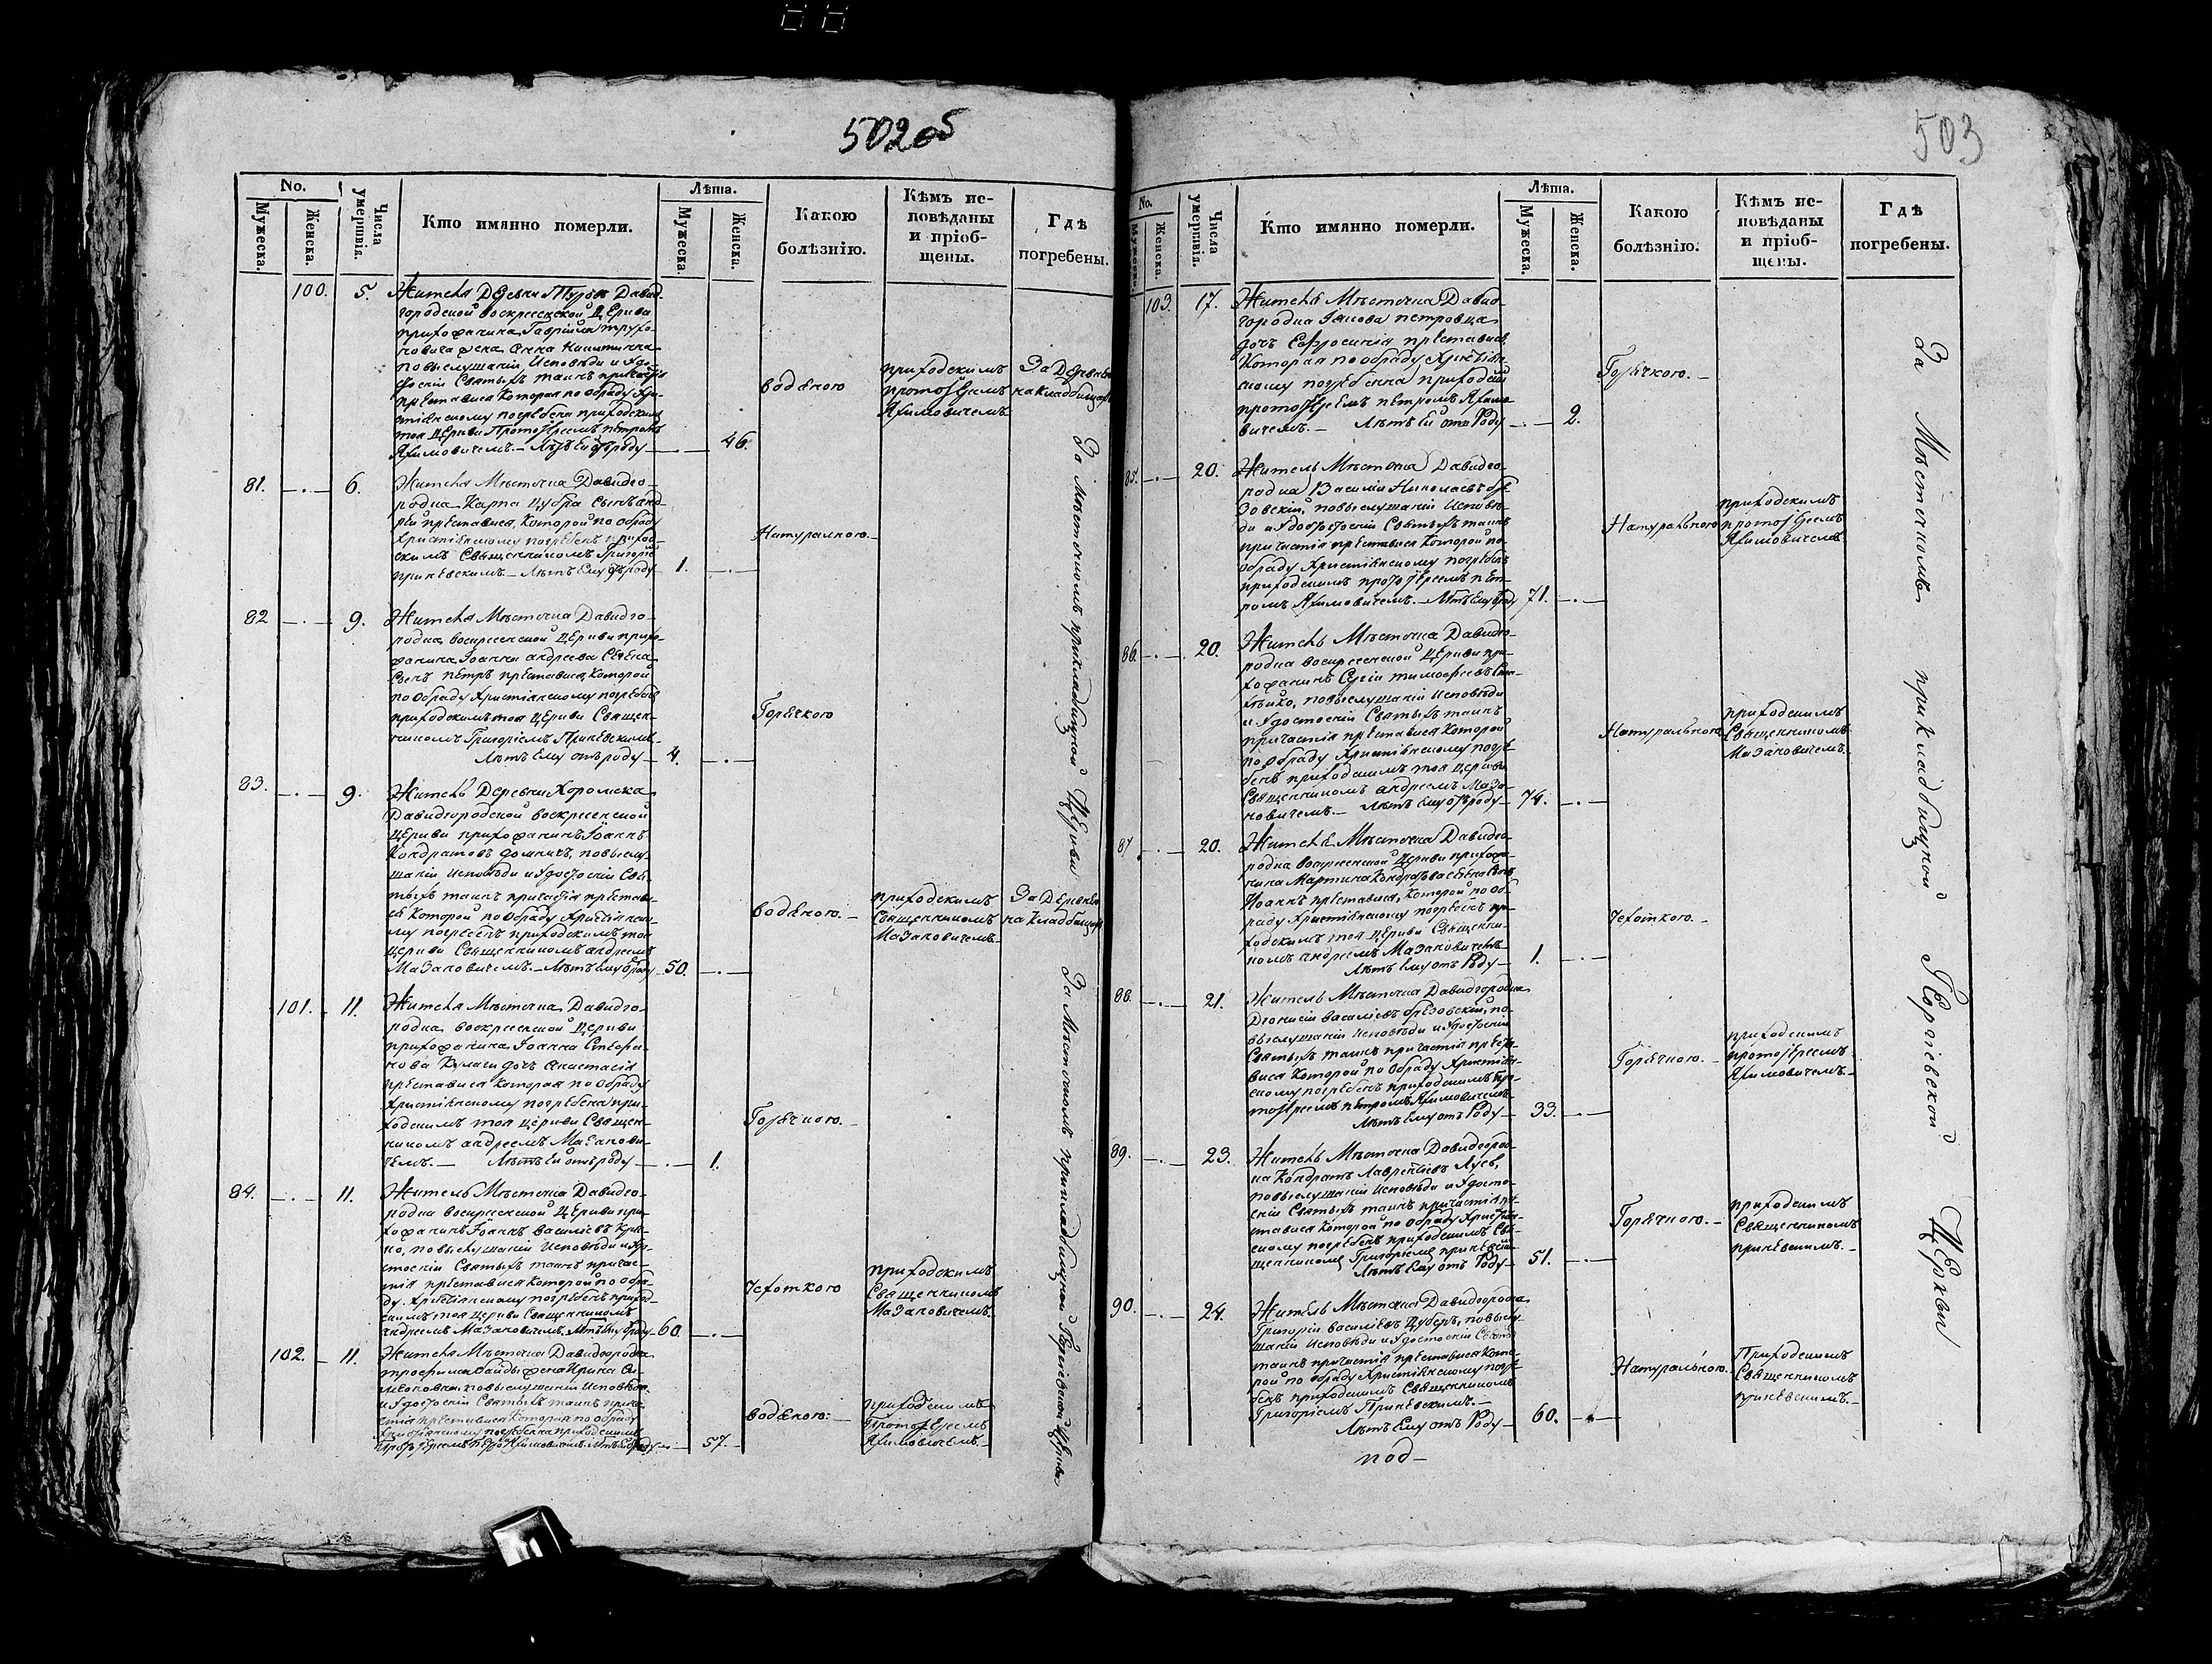 502об
No.
Мужеска.
Женска.
Числа умертвія.
Кто имянно померли.
Лѣта.
Мужеска.
Женска.
Какою болѣзнію.
Кѣмъ исповѣданы и пріобщены.
Гдѣ погребены.
100.
5.
Жителя Деревни Давид-
городской воскресенской Церкви
прихожанина Гавріила трухо-
новича жена Анна
по выслушаніи Исповѣди и удо-
стоеніи Святыхъ таинъ причастія
преставися Которая по обряду Хри-
стіянскому погребена приходскимъ
тоя Церкви Протоіереемъ петромъ
Якимовичемъ.— Лѣтъ Ей отъ роду
46.
водяною
приходскимъ
протоіереемъ
Якимовичемъ
За Деревнею
на Кладбищи
81.
6.
Жителя Мѣстечка Давидго-
родка Карпа Цубра Сынъ анд-
рей преставися, Которой по обряду
Христіянскому погребенъ приход-
скимъ Священникомъ Григоріемъ
приневскимъ.— Лѣтъ Ему отъ роду
1.
Натуралною.
82
9.
Жителя Мѣстечка Давидго-
родка воскресенской Церкви прихо-
жанина Іоанна андреева
Сынъ петръ преставися, Которой
по Обряду Христіянскому погребенъ
приходскимъ тоя Церкви Священ-
никомъ Григоріемъ Приневскимъ
Лѣтъ Ему отъ роду
4.
Горячкою
83.
9.
Житель Деревни Хоромска
Давидгородской воскресенской
Церкви прихожанинъ Іоаннъ
Кондратовъ по выслу-
шаніи Исповѣди и удостоеніи Свя-
тыхъ таинъ причастія престави-
ся Которой по обряду Христіянско-
му погребенъ приходскимъ тоя
Церкви Священникомъ андреемъ
Мазановичемъ.— Лѣтъ Ему отъ роду
50.
водяною.
приходскимъ
Священникомъ
Мазановичемъ
За Деревнею
на Кладбищи
101.
11.
Жителя Мѣстечка Давидго-
родка воскресенской Церкви
прихожанина Іоанна Стефа-
нова Кулаги дочь Анастасія
преставися Которая по обряду
Христіянскому погребена при-
ходскимъ тоя Церкви Священ-
никомъ андреемъ Мазанови-
чемъ.— Лѣтъ Ей отъ роду
1.
Горячкою.
84.
11.
Житель Мѣстечка Давидго-
родка воскресенской Церкви при-
хожанинъ Іоаннъ василіевъ
по выслушаніи Исповѣди и удо-
стоеніи Святыхъ таинъ причас-
тія преставися Которой по обря-
ду Христіянскому погребенъ приход-
скимъ тоя Церкви Священникомъ
андреемъ Мазановичемъ. Лѣтъ Ему отъ роду
60.
Чехоткою
приходскимъ
Священникомъ
Мазановичемъ
102.
11.
Жителя Мѣстечка Давидгородка
трофима жена Ирина
по выслушаніи Исповѣди
и удостоеніи Святыхъ таинъ прича-
стія преставися Которая по обряду
Христіянскому погребена приходскимъ
57.
водяною.
приходскимъ
Протоіереемъ
Якимовичемъ.
За мѣстечкомъ при кладбищной Церкви
За Мѣстечкомъ при кладбищной Георгіевской Церкви
503
No.
Мужеска.
Женска.
Числа умертвія.
Кто имянно померли.
Лѣта.
Мужеска.
Женска.
Какою болѣзнію.
Кѣмъ исповѣданы и пріобщены.
Гдѣ погребены.
103.
17.
Жителя Мѣстечка Давид-
городка петровца
дочь Евфросинія преставися
Которая по обряду Христіян-
скому погребена приходскимъ
протоіереемъ петромъ Якимо-
вичемъ.— Лѣтъ Ей отъ Роду
2.
Горячкою.
85.
20.
Житель Мѣстечка Давидго-
родка Василій Николаевъ
по выслушаніи Исповѣ-
ди и удостоеніи Святыхъ таинъ
причастія преставися Которой по
обряду Христіянскому погребенъ
приходскимъ протоіереемъ пет-
ромъ Якимовичемъ.— Лѣтъ Ему отъ роду
71.
Натуралною
приходскимъ
протоіереемъ
Якимовичемъ
86.
20.
Житель Мѣстечка Давидго-
родка воскресенской Церкви при-
хожанинъ Сергій тимофеевъ
по выслушаніи Исповѣди
и удостоеніи Святыхъ таинъ
причастія преставися Которой
по обряду Христіянскому погре-
бенъ приходскимъ тоя Церкви
Священникомъ андреемъ Маза-
новичемъ.— Лѣтъ Ему отъ роду
74.
Натуралною
приходскимъ
Священникомъ
Мазановичемъ.
87
20.
Жителя Мѣстечка Давидго-
родка воскресенской Церкви прихожа-
нина Мартина Кондратова
Иоаннъ преставися, Которой по об-
ряду Христіянскому погребенъ при-
ходскимъ тоя Церкви Священни-
комъ андреемъ Мазановичемъ
Лѣтъ Ему отъ Роду
1.
Чехоткою.
88.
21.
Житель Мѣстечка Давидгородка
Діонисій василіевъ брезовскій, по
выслушаніи Исповѣди и удостоеніи
Святыхъ таинъ причастія преста-
вися Которой по Обряду Христіян-
скому погребенъ приходскимъ про-
тоіереемъ петромъ Якимовичемъ
Лѣтъ Ему отъ Роду
33.
Горячкою.
приходскимъ
протоіереемъ
Якимовичемъ.
89.
23.
Житель Мѣстечка Давидгород-
ка Кондратъ Лаврентіевъ
по выслушаніи Исповѣди и удосто-
еніи Святыхъ таинъ причастія пре-
ставися Которой по обряду Христіян-
скому погребенъ приходскимъ Свя-
щенникомъ Григоріемъ приневскимъ
Лѣтъ Ему отъ Роду
51.
Горячкою.
приходскимъ
Священникомъ
приневскимъ.
90.
24.
Житель Мѣстечка Давидгородка
Григорій василіевъ Цубръ, по выслу-
шаніи Исповѣди и удостоеніи Святыхъ
таинъ причастія преставися Кото-
рой по обряду Христіянскому погре-
бенъ приходскимъ Священникомъ
Григоріемъ Приневскимъ.—
Лѣтъ Ему отъ Роду
60.
Натуралною.
Приходскимъ
Священникомъ
приневскимъ.
За Мѣстечкомъ при Кладбищной Георгіевской Церкви
под-